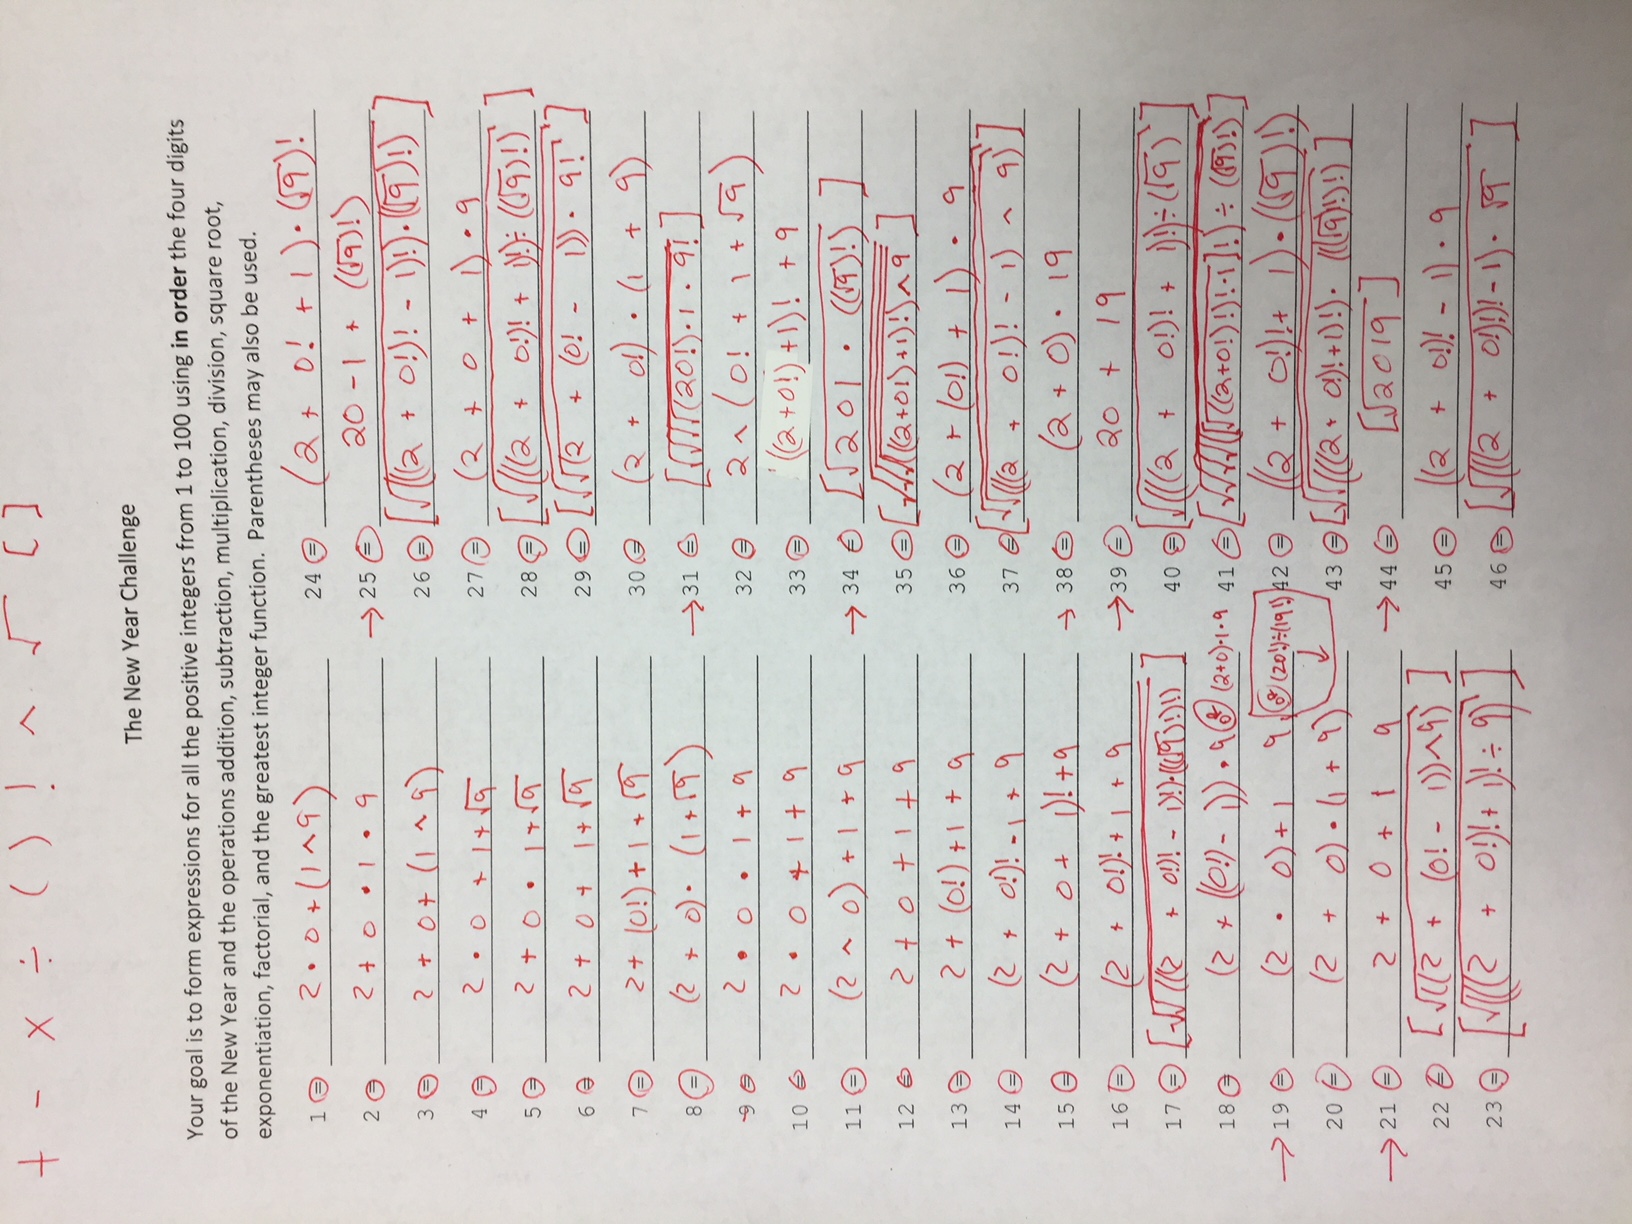 + - x ÷ ( ) ! ^ √ [ ]
The New Year Challenge
Your goal is to form expressions for all the positive integers from 1 to 100 using in order the four digits
of the New Year and the operations addition, subtraction, multiplication, division, square root,
exponentiation, factorial, and the greatest integer function. Parentheses may also be used.
1 = 2 • 0 + (1 ^ 9)
2 = 2 + 0 • 1 • 9
3 = 2 + 0 + (1 ^ 9)
4 = 2 • 0 + 1 + √9
5 = 2 + 0 • 1 + √9
6 = 2 + 0 + 1 + √9
7 = 2 + (0!) + 1 + √9
8 = (2 + 0) • (1 + √9)
→ 9 = 2 • 0 • 1 + 9
10 = 2 • 0 + 1 + 9
11 = (2 ^ 0) + 1 + 9
12 = 2 + 0 + 1 + 9
13 = 2 + (0!) + 1 + 9
14 = (2 + 0!)! - 1 + 9
15 = (2 + 0 + 1)! + 9
16 = (2 + 0!)! + 1 + 9
17 = [√√((2 + 0!)! - 1)! • ((√9)!)!)]
18 = (2 + ((0!) - 1)) • 9 or (2+0) • 1 • 9
→ 19 = (2 • 0) + 1 9 or (20!) ÷ (19!)
20 = (2 + 0) • (1 + 9)
→ 21 = 2 + 0 + 1 9
22 = [√((2 + (0! - 1)) ^ 9)]
23 = [√((((2 + 0!)! + 1)! ÷ 9)]
24 = (2 + 0! + 1) • (√9)!
→ 25 = 20 - 1 + ((√9)!)
26 = [√(((2 + 0!)! - 1)!) • ((√9)!)]
27 = (2 + 0 + 1) • 9
28 = [√(((2 + 0!)! + 1)!) ÷ ((√9)!)]
29 = [√√(2 + (0! - 1)) • 9!]
30 = (2 + 0!) • (1 + 9)
→ 31 = [√√√√(20!) • 1 • 9!]
32 = 2 ^ (0! + 1 + √9)
33 = ((2+0!)+1)! + 9
→ 34 = [√201 • ((√9)!)]
35 = [√√√√(((2+0!)+1)!) ^ 9]
36 = (2 + (0!) + 1) • 9
37 = [√√((2 + 0!)! - 1) ^ 9]
→ 38 = (2 + 0) • 19
→ 39 = 20 + 19
40 = [√(((2 + 0!)! + 1)!) ÷ (√9)]
42 = ((2 + 0!)! + 1) • ((√9)!)
→ 44 = [√2019]
45 = ((2 + 0!)! - 1) • 9
46 = [√(((2 + 0!)!)! - 1) • √9]